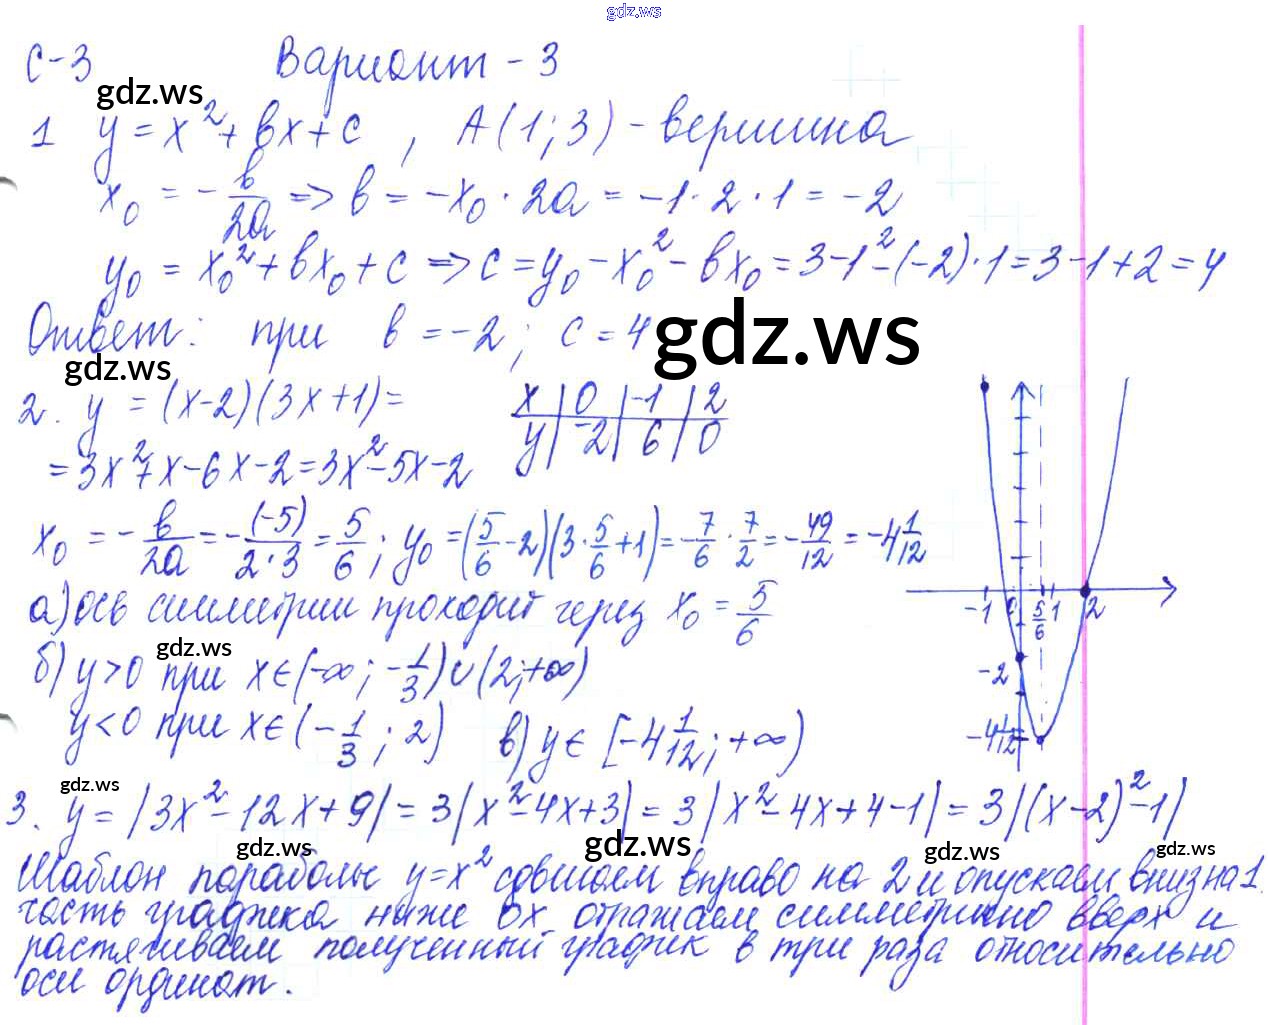 gdz.ws
С-3 Вариант - 3
gdz.ws
1 y = x² + bx + c , A(1; 3) - вершина
x₀ = - b/2a => b = -x₀ · 2a = -1 · 2 · 1 = -2
y₀ = x₀² + bx₀ + c => c = y₀ - x₀² - bx₀ = 3 - 1² - (-2) · 1 = 3 - 1 + 2 = 4
Ответ: при b = -2; c = 4
gdz.ws
gdz.ws
2. y = (x-2)(3x+1) =
= 3x² + x - 6x - 2 = 3x² - 5x - 2
x | 0 | -1 | 2
y | -2 | 6 | 0
x₀ = - b/2a = - (-5)/2·3 = 5/6; y₀ = (5/6 - 2)(3 · 5/6 + 1) = -7/6 · 7/2 = -49/12 = -4 1/12
а) ось симметрии проходит через x₀ = 5/6
gdz.ws
б) y > 0 при x ∈ (-∞; -1/3) ∪ (2; +∞)
y < 0 при x ∈ (-1/3; 2) в) y ∈ [-4 1/12; +∞)
-1 0 5/6 1 2
-2
-4 1/12
gdz.ws
3. y = |3x² - 12x + 9| = 3|x² - 4x + 3| = 3|x² - 4x + 4 - 1| = 3|(x-2)² - 1|
gdz.ws gdz.ws gdz.ws gdz.ws
Шаблон параболы y = x² сдвигаем вправо на 2 и опускаем вниз на 1.
часть графика ниже OX отражаем симметрично вверх и
растягиваем полученный график в три раза относительно
оси ординат.